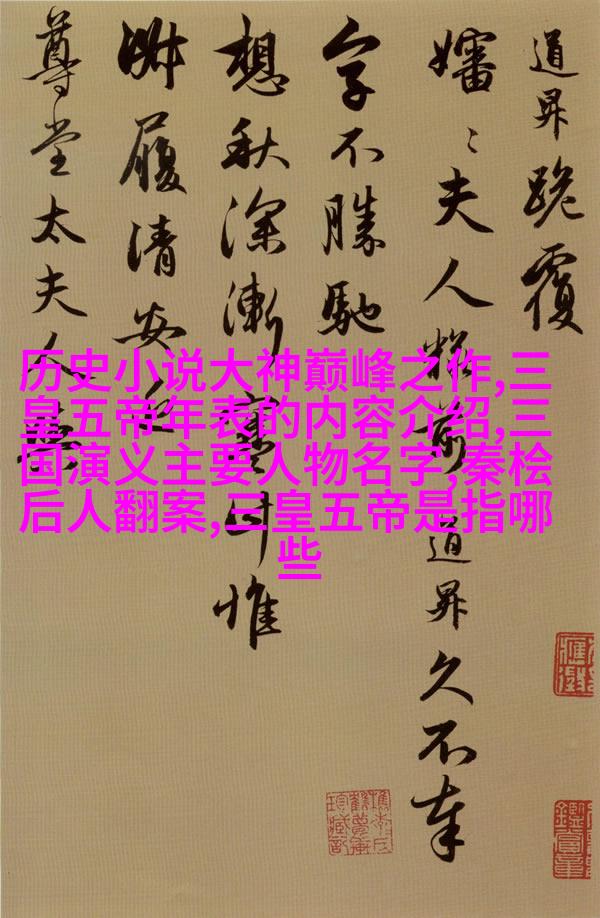 道昇跪覆
嬸〻夫人粧前道昇久不奉
字不勝馳
想秋深漸寒計惟
淑履清安近
尊堂太夫人
历史小说大神巅峰之作,三
皇五帝年表的内容介绍,三
国演义主要人物名字,秦桧
后人翻案,三皇五帝是指哪
些